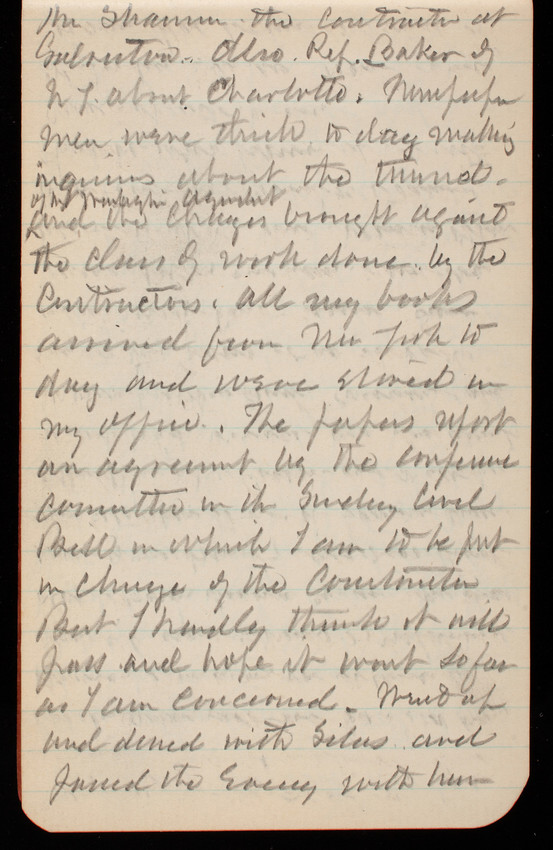 Mr Shannon the Contractor at
Galveston. Also Ref. Baker of
N Y about Charlotte. Newspaper
men were thick to day making
inquiries about the tunnel.
of Mr argument
and the charges brought against
the class of work done by the
Contractors. All my books
arrived from New York to
day and were stored in
my office. The papers report
an agreement by the conference
Committee in the Sundry Civil
Bill in which I am to be put
in charge of the Construction
But I hardly think it will
pass and hope it wont so far
as I am concerned. Went up
and dined with Silas and
passed the Evening with him